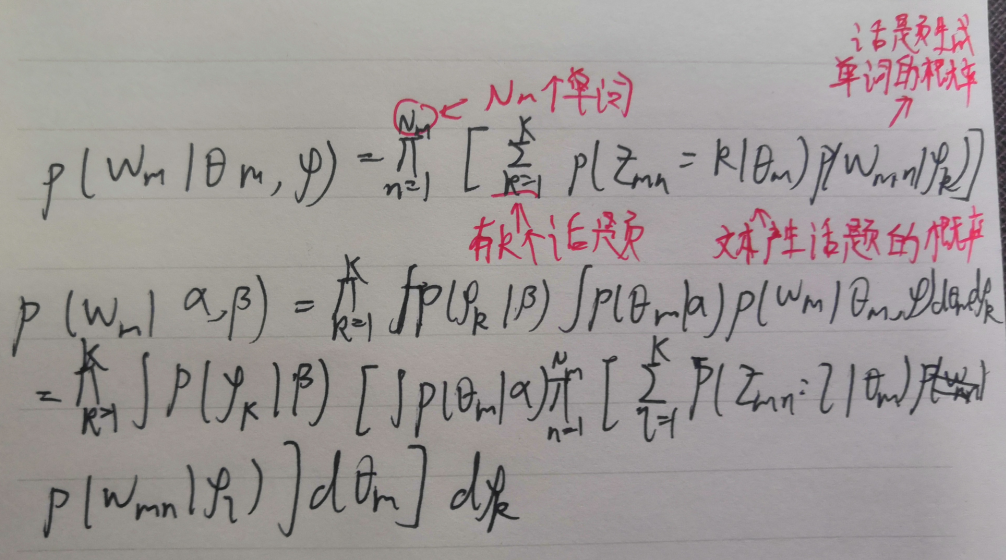 话题生成
单词的概率
N_m个单词
p(w_m|θ_m, φ) = ∏_{n=1}^{N_m} [ ∑_{k=1}^{K} p(z_{mn} = k|θ_m) p(w_{mn}|φ_k) ]
有k个话题 文本产生话题的概率
p(w_m|α, β) = ∏_{k=1}^{K} ∫p(φ_k|β) ∫p(θ_m|α) p(w_m|θ_m, φ)dθ_m dφ_k
= ∏_{k=1}^{K} ∫ p(φ_k|β) [ ∫p(θ_m|α) ∏_{n=1}^{N_m} [ ∑_{l=1}^{K} P(z_{mn} = l|θ_m)
p(w_{mn}|φ_l) ]dθ_m ] dφ_k